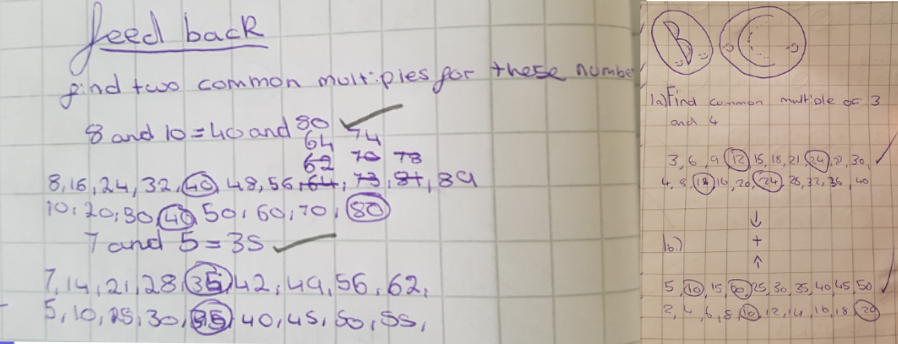 feed back
find two common multipies for these number
8 and 10 = 40 and 80
64 74
62 70 78
8, 16, 24, 32, 40, 48, 56, 64, 73, 81, 89
10, 20, 30, 40, 50, 60, 70, 80
7 and 5 = 35
7, 14, 21, 28, 35, 42, 49, 56, 62,
5, 10, 25, 30, 35, 40, 45, 50, 55,
B C
1a) Find common multiple of 3
and 4
3, 6, 9, 12, 15, 18, 21, 24, 27, 30,
4, 8, 12, 16, 20, 24, 28, 32, 36, 40
↓
1b.) +
↑
5, 10, 15, 20, 25, 30, 35, 40, 45, 50
2, 4, 6, 8, 10, 12, 14, 16, 18, 20